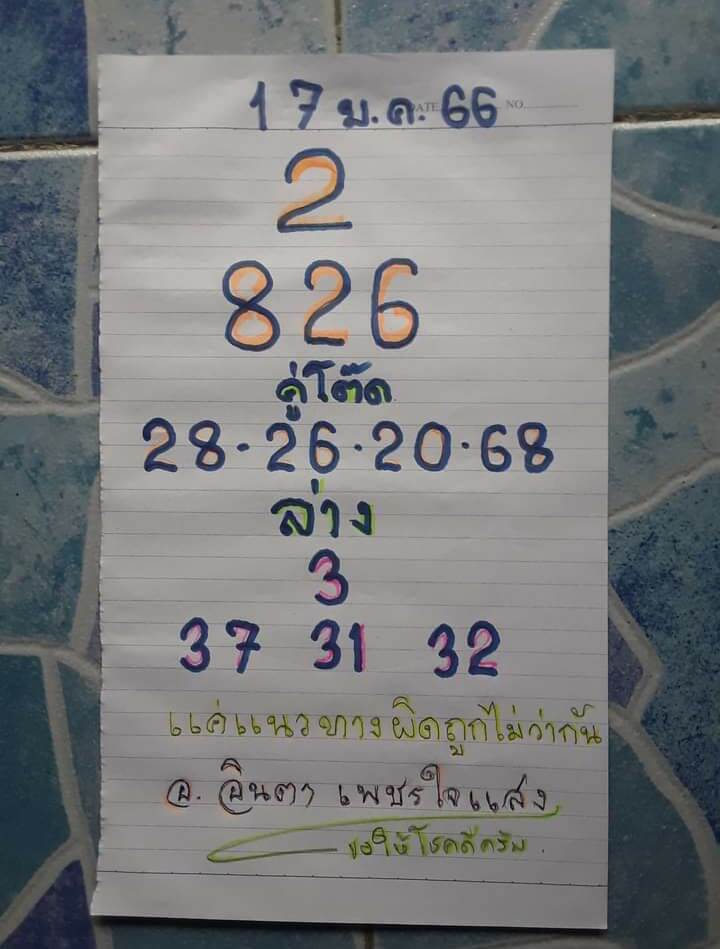 17 ม.ค. 66
DATE NO.
2
826
คู่โต๊ด
28 · 26 · 20 · 68
ล่าง
3
37 31 32
แค่แนวทางผิดถูกไม่ว่ากัน
อ. อินตา เพชรใจแสง
ขอให้โชคดีครับ.